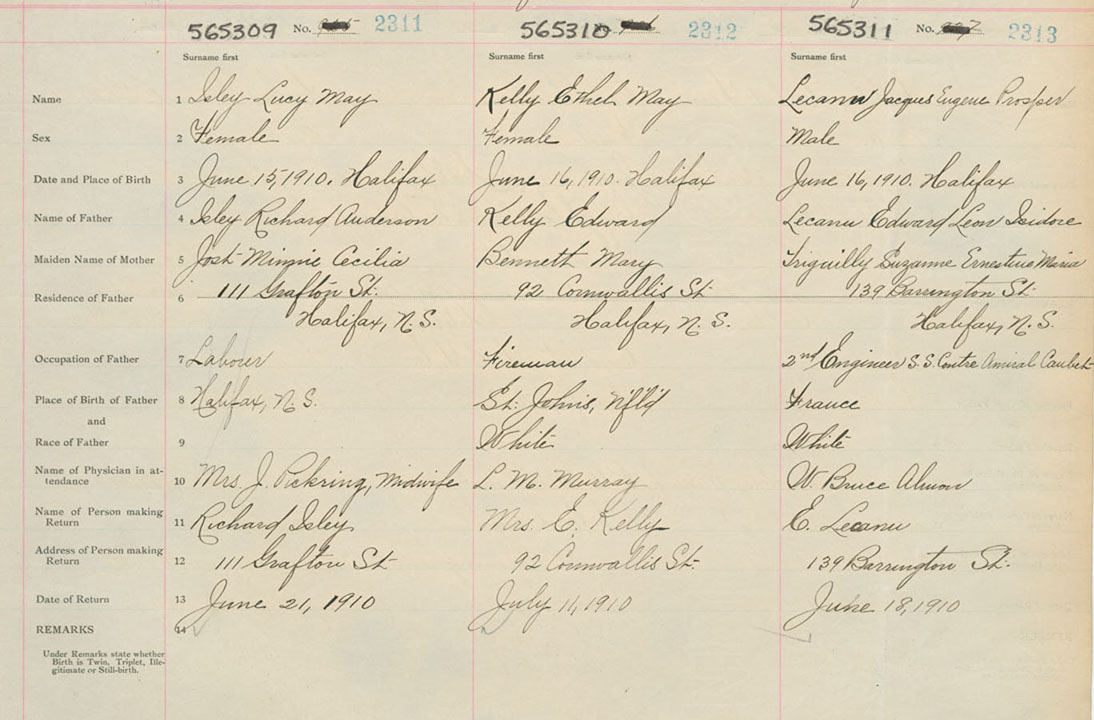 565309 No. 2311 565310 2312 565311 No. 2313
Surname first Surname first Surname first
Name 1 Isley Lucy May Kelly Ethel May Lecanu Jacques Eugene Prosper
Sex 2 Female Female Male
Date and Place of Birth 3 June 15, 1910. Halifax June 16, 1910. Halifax June 16, 1910. Halifax
Name of Father 4 Isley Richard Anderson Kelly Edward Lecanu Edward Leon Isidore
Maiden Name of Mother 5 Josh Minnie Cecilia Bennett Mary Suzanne Ernestine Maria
Residence of Father 6 111 Grafton St. 92 Cornwallis St 139 Barrington St.
Halifax, N.S. Halifax, N.S. Halifax, N.S.
Occupation of Father 7 Labour Fireman 2nd Engineer S.S. Contre Amiral Caubet
Place of Birth of Father 8 Halifax, N.S. St. Johns, Nfld France
and
Race of Father 9 White White
Name of Physician in at-
tendance 10 Mrs. J. Pickring, Midwife L. M. Murray W. Bruce Almon
Name of Person making
Return 11 Richard Isley Mrs. E. Kelly E. Lecanu
Address of Person making
Return 12 111 Grafton St. 92 Cornwallis St. 139 Barrington St.
Date of Return 13 June 21, 1910 July 11, 1910 June 18, 1910
REMARKS 14
Under Remarks state whether
Birth is Twin, Triplet, Ille-
gitimate or Still-birth.